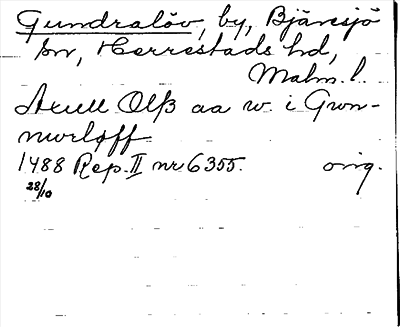 Gundralöv, by, Bjäresjö
sn, Herrestads hd,
Malm. l.
Axell Olß aa w. i Gwn-
nwrløff
1488 Rep. II nr 6355. orig.
28/10